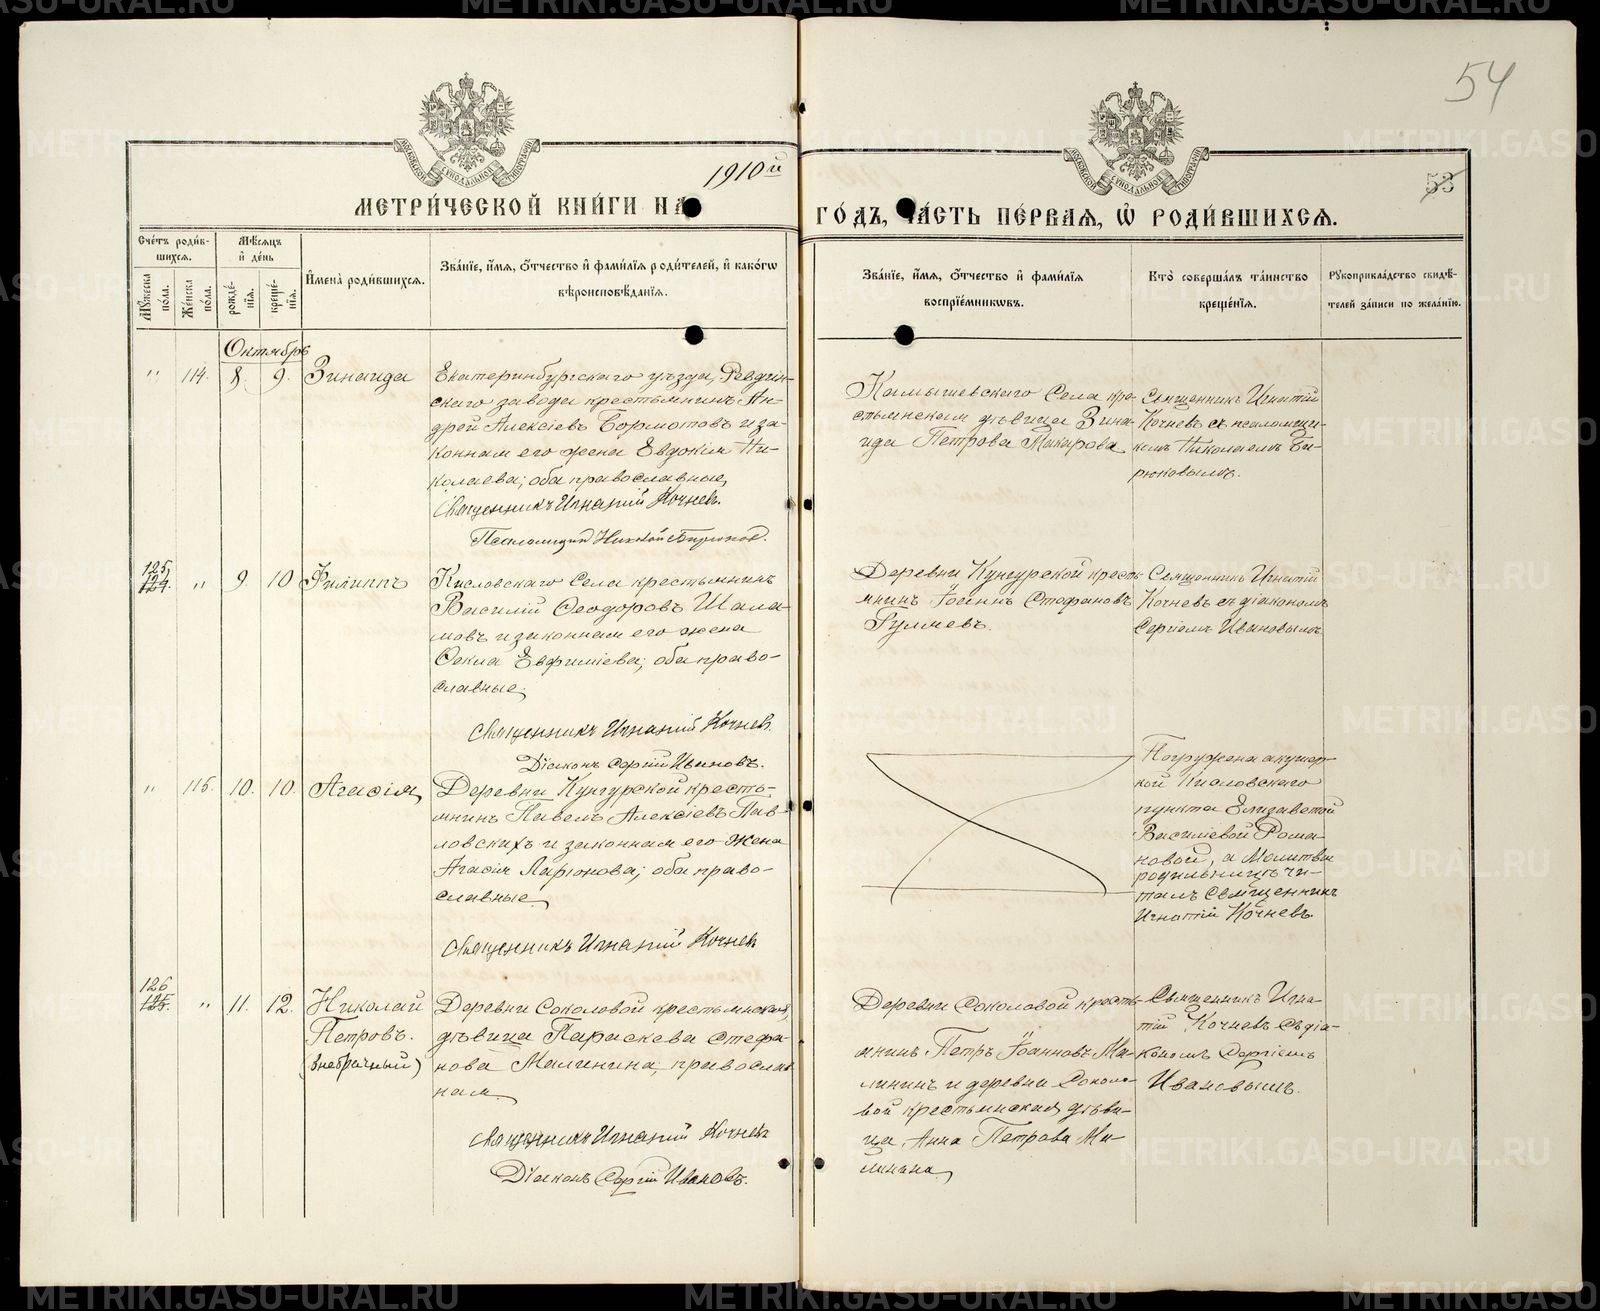 54
53
МОСКОВСКОЙ СѴНОДАЛЬНОЙ ТИПОГРАФІИ
МОСКОВСКОЙ СѴНОДАЛЬНОЙ ТИПОГРАФІИ
1910й
МЕТРИ́ЧЕСКОЙ КНИ́ГИ НА
ГО́ДЪ, ЧА́СТЬ ПЕ́РВАЯ, Ѽ РОДИ́ВШИХСЯ.
Сче́тъ роди́в-
шихся.
Мѣсяцъ
и҆ де́нь
Мꙋ́жеска
по́ла.
Же́нска
по́ла.
рожде́-
нїя.
креще́-
нїя.
И҆мена̀ роди́вшихся.
Зва́нїе, и҆́мя, ѻ҆́тчество и҆ фами́лїя роди́телей, и҆ како́гѡ
вѣроисповѣ́данїя.
Зва́нїе, и҆́мя, ѻ҆́тчество и҆ фами́лїя
воспрїе́мникѡвъ.
Кто̀ соверша́лъ та́инство
креще́нїя.
Рꙋкоприкла́дство свидѣ́-
телей за́писи по жела́нїю.
Октябрь
" 114. 8. 9. Зинаида
Екатеринбургскаго уѣзда, Ревдин-
скаго завода крестьянинъ Ан-
дрей Алексіевъ Бормотовъ и за-
конная его жена Евдокія Ни-
колаева; оба православные,
Священникъ Игнатій Кочнев.
Псаломщик Николай Бирюков.
Камышевскаго Села кре-
стьянская дѣвица Зина-
ида Петрова Макарова
Священникъ Игнатій
Кочневъ съ псаломщи-
комъ Николаемъ Би-
рюковымъ.
125
124. " 9. 10 Филиппъ
Кисловскаго Села крестьянинъ
Василій Ѳеодоровъ Шала-
мовъ и законная его жена
Ѳекла Евфиміева; оба право-
славные,
Священникъ Игнатій Кочнев.
Діаконъ Сергій Ивановъ.
Деревни Кунгурской кресть-
янинъ Іоаннъ Стефановъ
Гуляевъ.
Священникъ Игнатій
Кочневъ съ діакономъ
Сергіемъ Ивановымъ
" 115. 10. 10. Агаѳія,
Деревни Кунгурской кресть-
янинъ Павелъ Алексіевъ Пав-
ловскихъ и законная его жена
Агаѳія Ларіонова; оба право-
славные,
Священникъ Игнатій Кочнев
Погружена акушер-
кой Кисловскаго
пункта Елизаветой
Василіевой Рома-
новой, а молитвы
родильницѣ чи-
талъ Священникъ
Игнатій Кочневъ.
126
125. " 11. 12. Николай
Петровъ.
(внебрачный)
Деревни Соколовой крестьянская
дѣвица Параскева Стефа-
нова Малинина, православ-
ная,
Священникъ Игнатій Кочневъ
Діаконъ Сергій Ивановъ.
Деревни Соколовой кресть-
янинъ Петръ Іоанновъ Ма-
лининъ и деревни Соколо-
вой крестьянская дѣви-
ца Анна Петрова Ма-
линина,
Священникъ Игна-
тій Кочневъ съ діа-
кономъ Сергіемъ
Ивановымъ.
METRIKI.GASO-URAL.RU